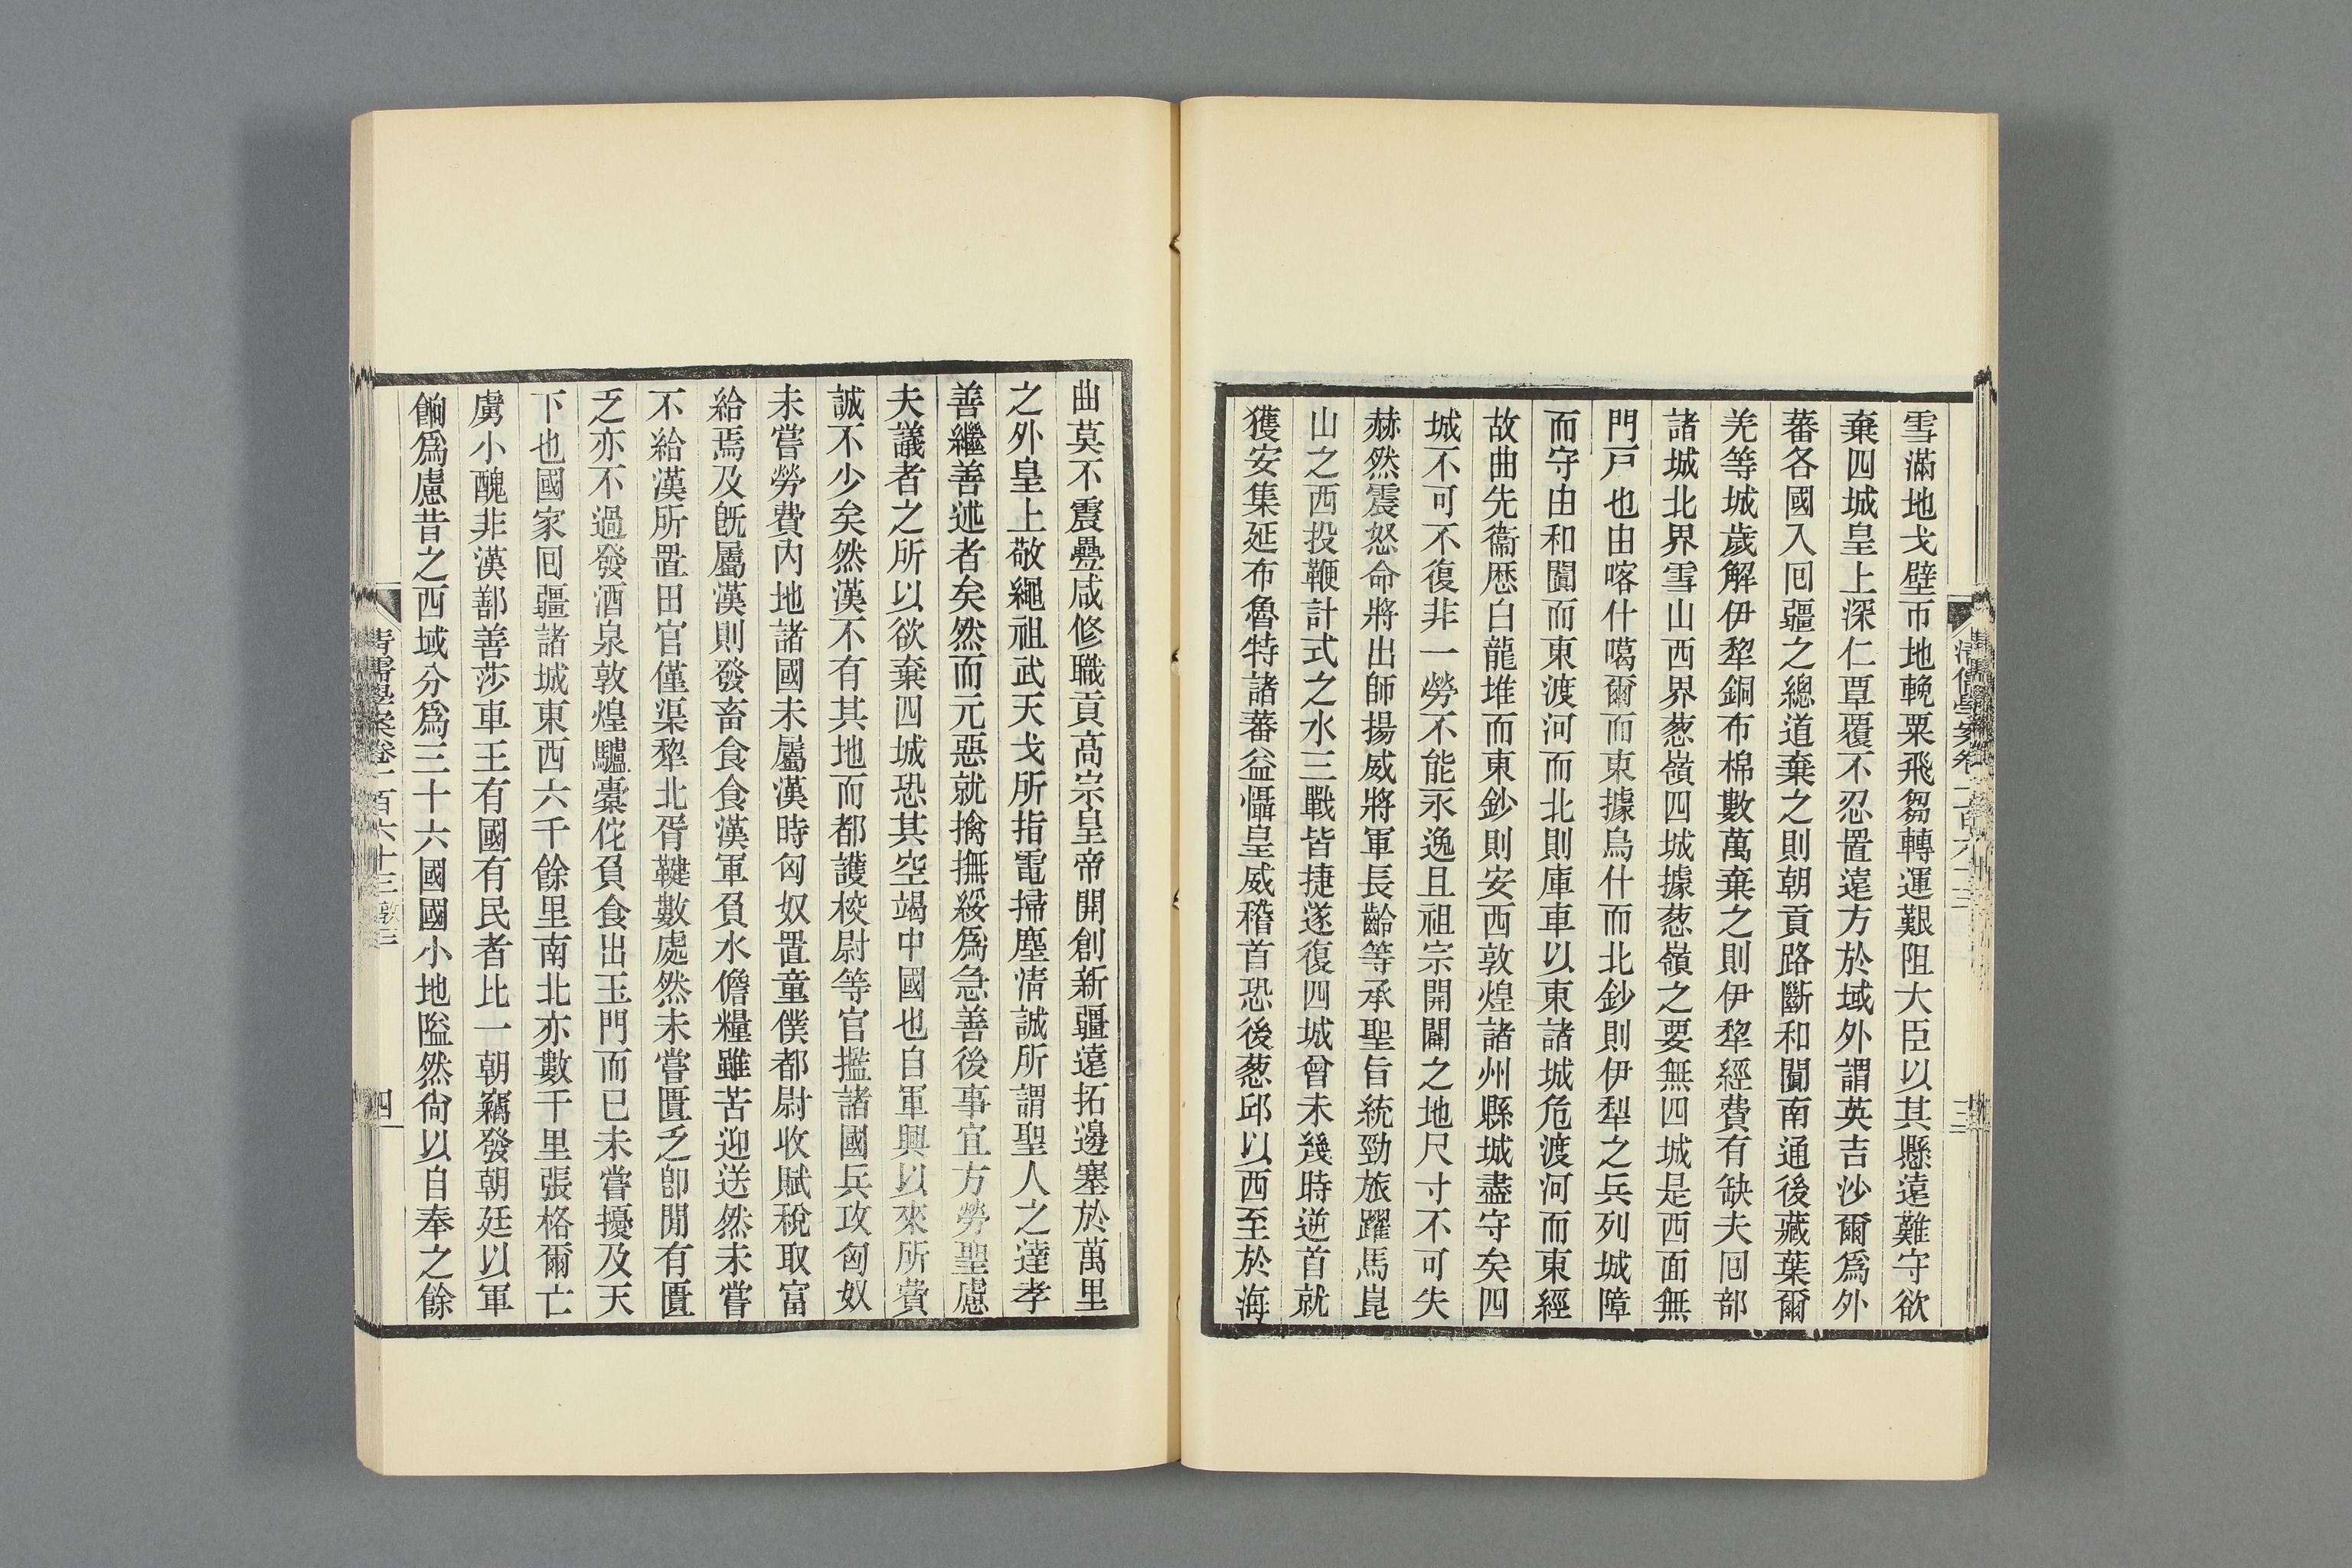 雪滿地戈壁帀地輓粟飛芻轉運艱阻大臣以其懸遠難守欲
棄四城皇上深仁覃覆不忍置遠方於域外謂英吉沙爾爲外
蕃各國入回疆之總道棄之則朝貢路斷和闐南通後藏葉爾
羌等城歲解伊犂銅布棉數萬棄之則伊犂經費有缺夫回部
諸城北界雪山西界葱嶺四城據葱嶺之要無四城是西面無
門戸也由喀什噶爾而東據烏什而北鈔則伊犁之兵列城障
而守由和闐而東渡河而北則庫車以東諸城危渡河而東經
故曲先衞歷白龍堆而東鈔則安西敦煌諸州縣城盡守矣四
城不可不復非一勞不能永逸且祖宗開闢之地尺寸不可失
赫然震怒命將出師揚威將軍長齡等承聖旨統勁旅躍馬崑
山之西投鞭計式之水三戰皆捷遂復四城曾未幾時逆首就
獲安集延布魯特諸蕃益懾皇威稽首恐後葱邱以西至於海
曲莫不震疊咸修職貢高宗皇帝開創新疆遠拓邊塞於萬里
之外皇上敬繩祖武天戈所指電掃塵清誠所謂聖人之達孝
善繼善述者矣然而元惡就擒撫綏爲急善後事宜方勞聖慮
夫議者之所以欲棄四城恐其空竭中國也自軍興以來所費
誠不少矣然漢不有其地而都護校尉等官搵諸國兵攻匈奴
未嘗勞費內地諸國未屬漢時匈奴置童僕都尉收賦稅取富
給焉及旣屬漢則發畜食食漢軍負水儋糧雖苦迎送然未嘗
不給漢所置田官僅渠犂北胥鞬數處然未嘗匱乏卽閒有匱
乏亦不過發酒泉敦煌驢橐佗負食出玉門而已未嘗擾及天
下也國家回疆諸城東西六千餘里南北亦數千里張格爾亡
虜小醜非漢鄯善莎車王有國有民者比一朝竊發朝廷以軍
餉爲慮昔之西域分爲三十六國國小地隘然尙以自奉之餘
清儒學案卷二百六十三
四